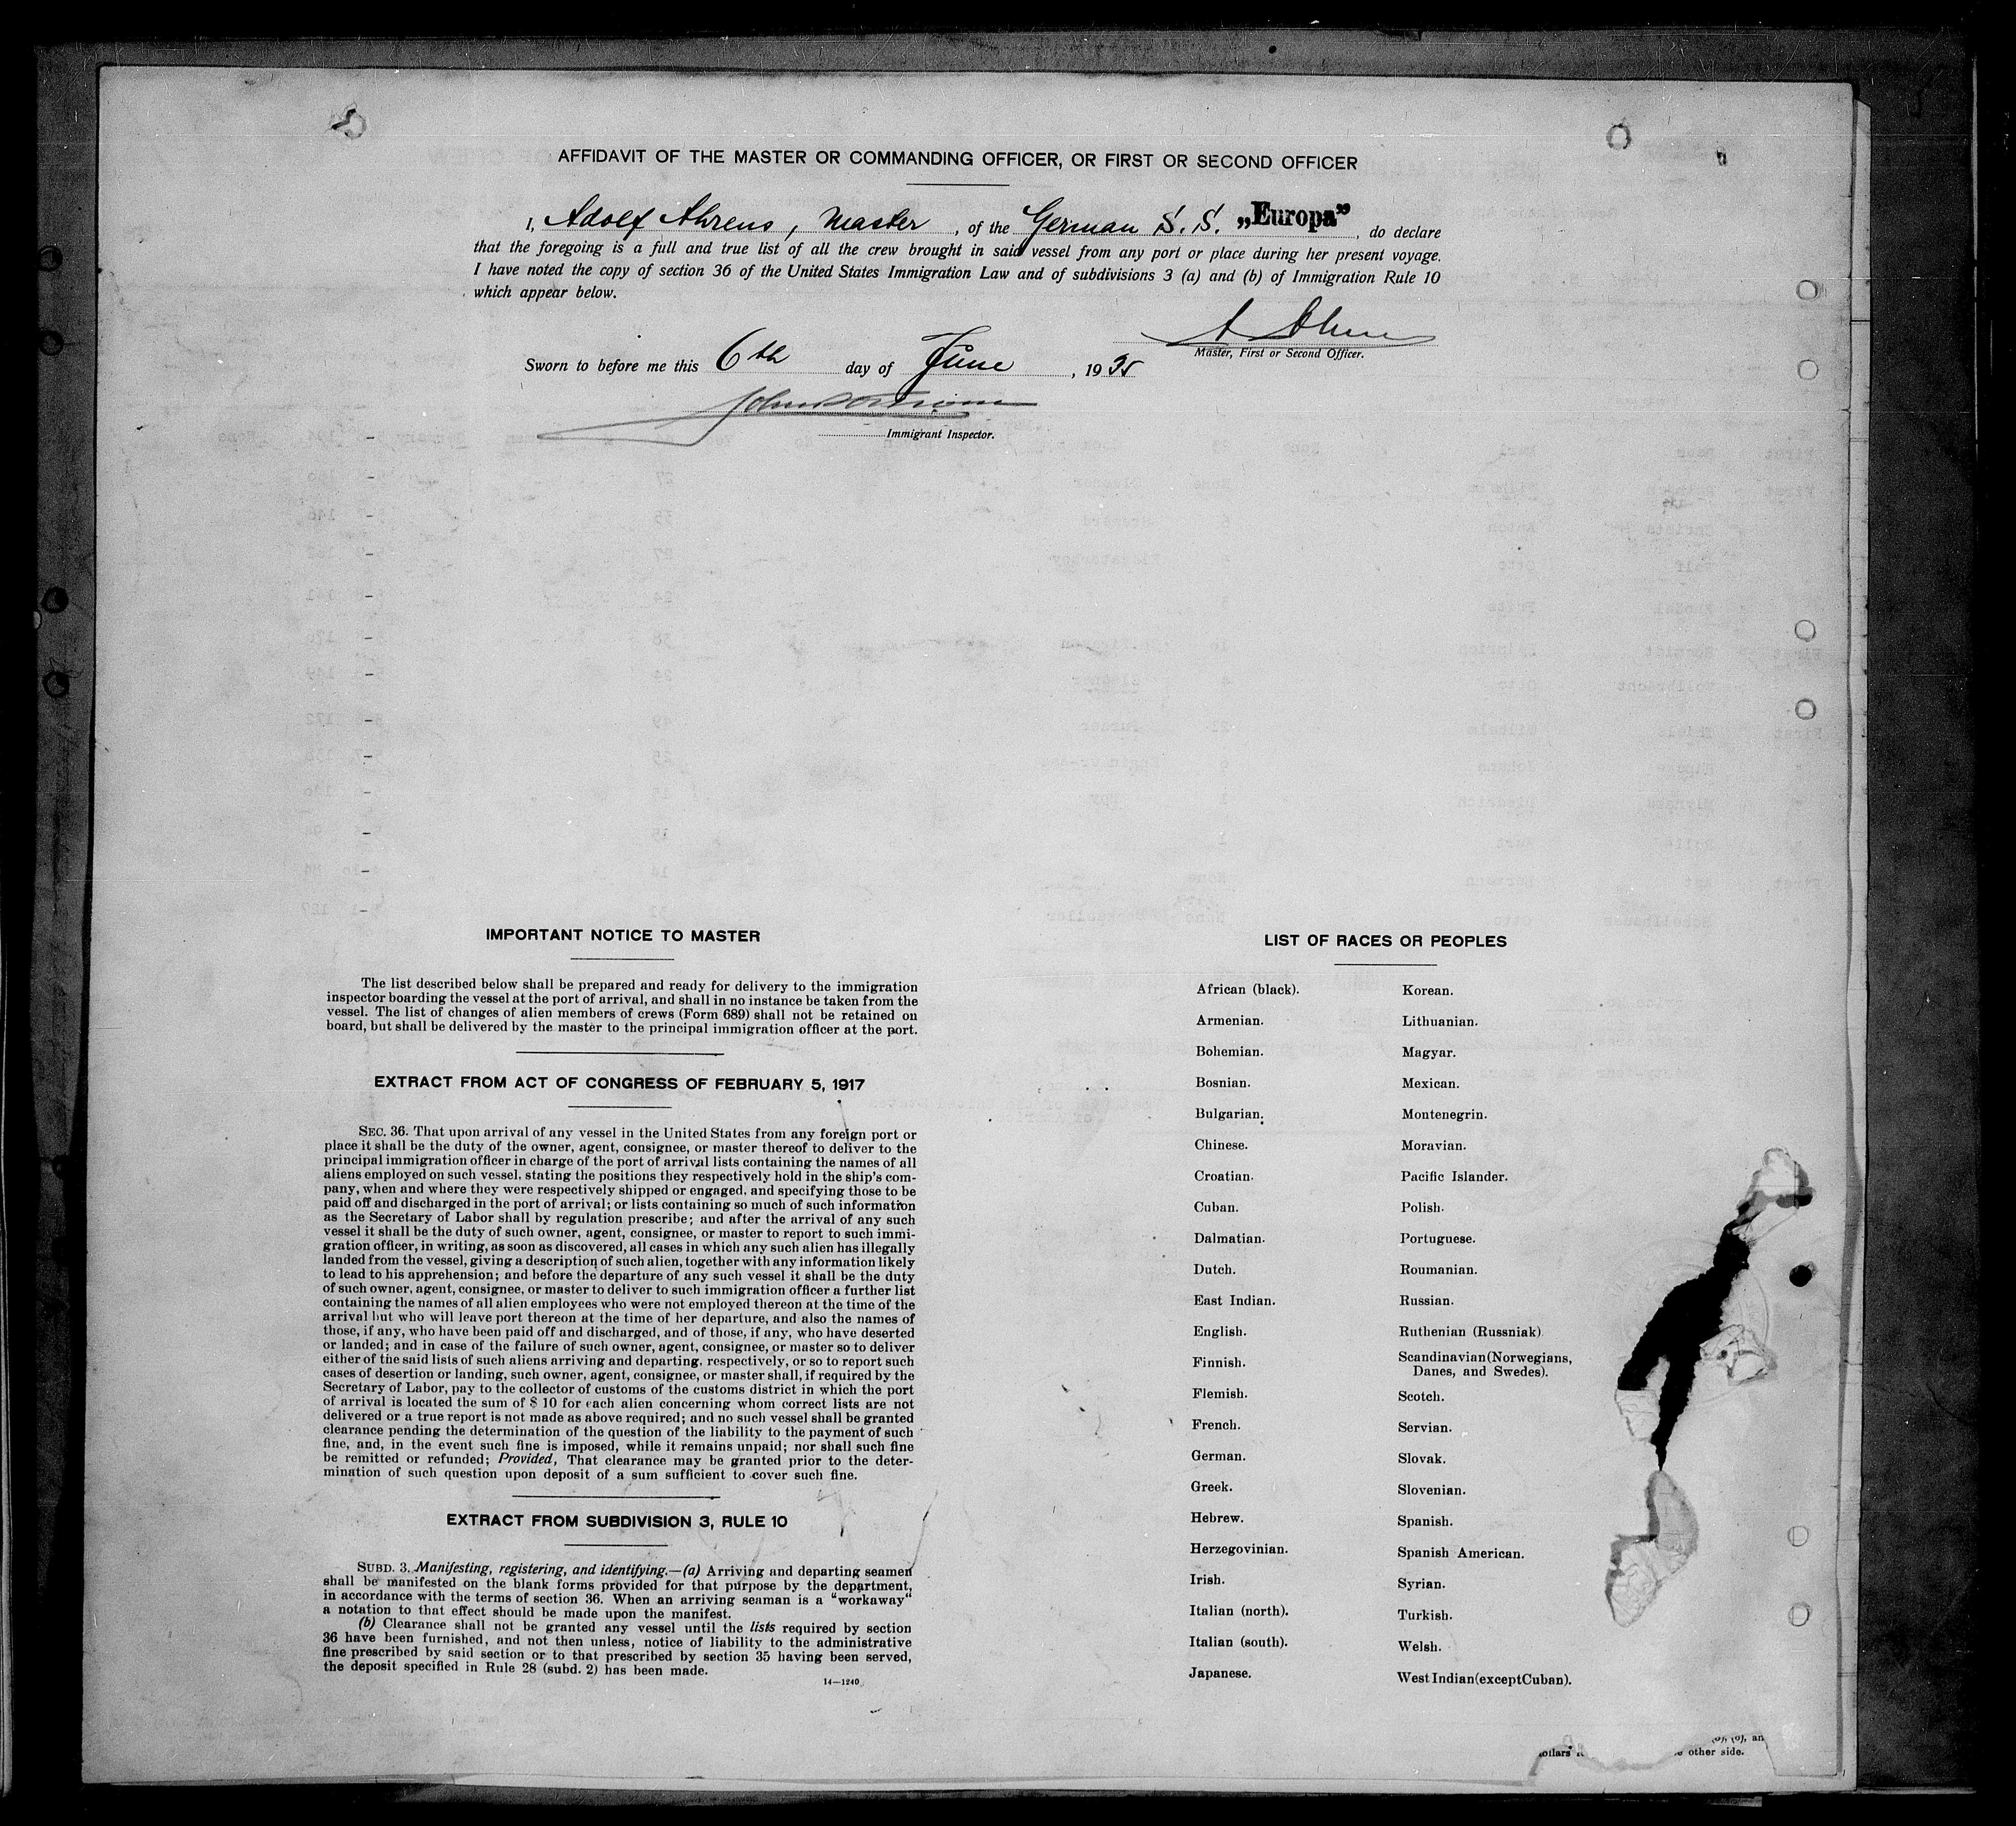 AFFIDAVIT OF THE MASTER OR COMMANDING OFFICER, OR FIRST OR SECOND OFFICER
I, Adolf Ahrens, Master, of the German S. S. „Europa”, do declare
that the foregoing is a full and true list of all the crew brought in said vessel from any port or place during her present voyage.
I have noted the copy of section 36 of the United States Immigration Law and of subdivisions 3 (a) and (b) of Immigration Rule 10
which appear below.
Master, First or Second Officer.
Sworn to before me this 6th day of June, 1935
Immigrant Inspector.
IMPORTANT NOTICE TO MASTER
The list described below shall be prepared and ready for delivery to the immigration
inspector boarding the vessel at the port of arrival, and shall in no instance be taken from the
vessel. The list of changes of alien members of crews (Form 689) shall not be retained on
board, but shall be delivered by the master to the principal immigration officer at the port.
EXTRACT FROM ACT OF CONGRESS OF FEBRUARY 5, 1917
SEC. 36. That upon arrival of any vessel in the United States from any foreign port or
place it shall be the duty of the owner, agent, consignee, or master thereof to deliver to the
principal immigration officer in charge of the port of arrival lists containing the names of all
aliens employed on such vessel, stating the positions they respectively hold in the ship's com-
pany, when and where they were respectively shipped or engaged, and specifying those to be
paid off and discharged in the port of arrival; or lists containing so much of such information
as the Secretary of Labor shall by regulation prescribe; and after the arrival of any such
vessel it shall be the duty of such owner, agent, consignee, or master to report to such immi-
gration officer, in writing, as soon as discovered, all cases in which any such alien has illegally
landed from the vessel, giving a description of such alien, together with any information likely
to lead to his apprehension; and before the departure of any such vessel it shall be the duty
of such owner, agent, consignee, or master to deliver to such immigration officer a further list
containing the names of all alien employees who were not employed thereon at the time of the
arrival but who will leave port thereon at the time of her departure, and also the names of
those, if any, who have been paid off and discharged, and of those, if any, who have deserted
or landed; and in case of the failure of such owner, agent, consignee, or master so to deliver
either of the said lists of such aliens arriving and departing, respectively, or so to report such
cases of desertion or landing, such owner, agent, consignee, or master shall, if required by the
Secretary of Labor, pay to the collector of customs of the customs district in which the port
of arrival is located the sum of $ 10 for each alien concerning whom correct lists are not
delivered or a true report is not made as above required; and no such vessel shall be granted
clearance pending the determination of the question of the liability to the payment of such
fine, and, in the event such fine is imposed, while it remains unpaid; nor shall such fine
be remitted or refunded; Provided, That clearance may be granted prior to the deter-
mination of such question upon deposit of a sum sufficient to cover such fine.
EXTRACT FROM SUBDIVISION 3, RULE 10
SUBD. 3. Manifesting, registering, and identifying.—(a) Arriving and departing seamen
shall be manifested on the blank forms provided for that purpose by the department,
in accordance with the terms of section 36. When an arriving seaman is a “workaway“
a notation to that effect should be made upon the manifest.
(b) Clearance shall not be granted any vessel until the lists required by section
36 have been furnished, and not then unless, notice of liability to the administrative
fine prescribed by said section or to that prescribed by section 35 having been served,
the deposit specified in Rule 28 (subd. 2) has been made.
14—1240
LIST OF RACES OR PEOPLES
African (black).
Armenian.
Bohemian.
Bosnian.
Bulgarian.
Chinese.
Croatian.
Cuban.
Dalmatian.
Dutch.
East Indian.
English.
Finnish.
Flemish.
French.
German.
Greek.
Hebrew.
Herzegovinian.
Irish.
Italian (north).
Italian (south).
Japanese.
Korean.
Lithuanian.
Magyar.
Mexican.
Montenegrin.
Moravian.
Pacific Islander.
Polish.
Portuguese.
Roumanian.
Russian.
Ruthenian (Russniak)
Scandinavian(Norwegians,
Danes, and Swedes).
Scotch.
Servian.
Slovak.
Slovenian.
Spanish.
Spanish American.
Syrian.
Turkish.
Welsh.
West Indian(exceptCuban).
other side.